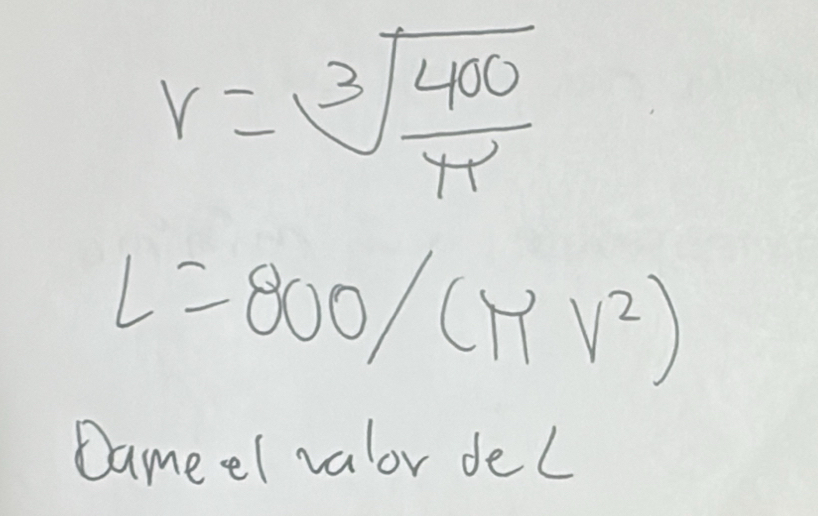 r = ∛(400/π)
L = 800/(π r²)
Dame el valor de L